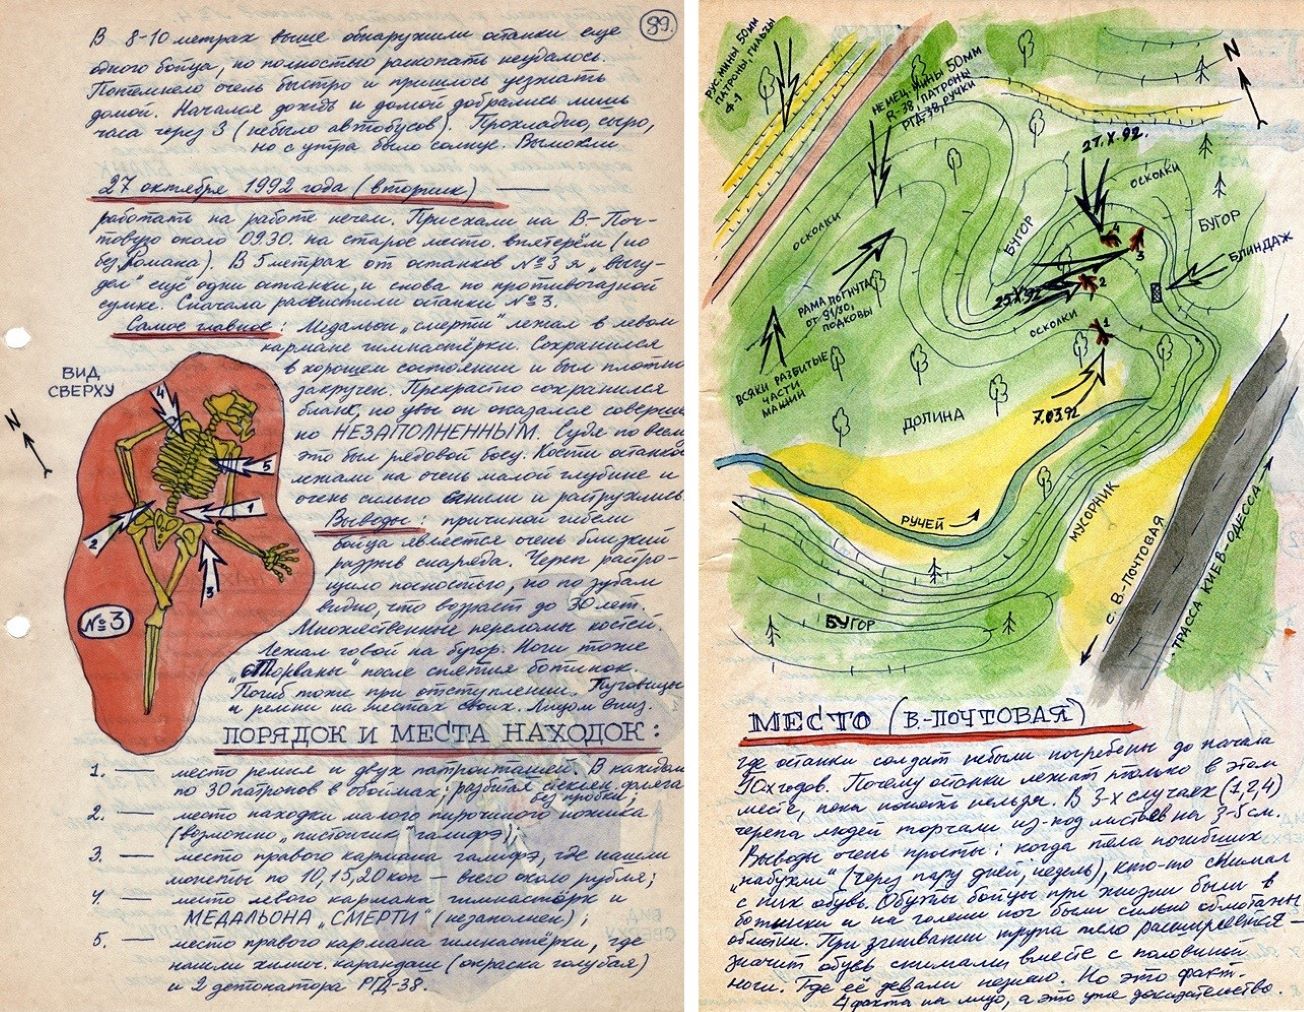 99.
В 8-10 метрах выше обнаружили останки еще
одного бойца, но полностью раскопать неудалось.
Потемнело очень быстро и пришлось уезжать
домой. Начался дождь и домой добрались лишь
часа через 3 (небыло автобусов). Прохладно, сыро,
но с утра было солнце. Вымокли
27 октября 1992 года (вторник) —
работать на работе нечем. Приехали на В-Поч-
товую около 09.30. на старое место. впятерём (но
без Романа). В 5 метрах от останков №3 я „выгу-
дел" ещё одни останки, и снова по противогазной
сумке. Сначала расчистили останки №3.
Самое главное: Медальон „смерти" лежал в левом
кармане гимнастёрки. Сохранился
в хорошем состоянии и был плотно
закручен. Прекрастно сохранился
бланк, но увы он оказался соверше
но НЕЗАПОЛНЕННЫМ. Судя по всему
это был рядовой боец. Кости останков
лежали на очень малой глубине и
очень сильно сгнили и разрушились
Выводы: причиной гибели
бойца является очень близкий
разрыв снаряда. Череп разру-
шило полностью, но по зубам
видно, что возраст до 30 лет.
Множественные переломы костей.
Лежал головой на бугор. Ноги тоже
„оторваны" после снятия ботинок.
Погиб тоже при отступлении. Пуговицы
и ремни на местах своих. Лицом вниз.
ВИД
СВЕРХУ
N
4
5
1
2
3
№3
ПОРЯДОК И МЕСТА НАХОДОК:
1. — место ремня и двух патронташей. В каждом
по 30 патронов в обоймах; разбитая стеклян. фляга
без пробки;
2. — место находки малого перочинного ножика
(возможно „пистончик" галифэ);
3. — место правого кармана галифэ, где нашли
монеты по 10, 15, 20 коп — всего около рубля;
4. — место левого кармана гимнастёрки и
МЕДАЛЬОНА „СМЕРТИ" (незаполнен);
5. — место правого кармана гимнастёрки, где
нашли химич. карандаш (окраска голубая)
и 2 детонатора РГД-38.
РУС. МИНЫ 50мм
ПАТРОНЫ, ГИЛЬЗЫ
Ф-1
НЕМЕЦ. МИНЫ 50мм
R-38, ПАТРОНЫ
РГД-38, РУЧКИ
N
27.X.92.
ОСКОЛКИ
ОСКОЛКИ
БУГОР
БУГОР
БЛИНДАЖ
4
3
25.X.92
2
РАМА ПОГНУТАЯ
ПОДКОВЫ
ОСКОЛКИ
1
ВСЯКИ РАЗБИТЫЕ
ЧАСТИ
МАШИН
ДОЛИНА
7.03.92
РУЧЕЙ
МУСОРНИК
БУГОР
с. В.-ПОЧТОВАЯ
ТРАССА КИЕВ-ОДЕССА
МЕСТО (В.-ПОЧТОВАЯ)
где останки солдат небыли погребены до начала
90х годов. Почему останки лежат только в этом
месте, пока понять нельзя. В 3-х случаях (1,2,4)
черепа людей торчали из-под листьев на 3-5 см.
Выводы очень просты: когда тела погибших
„набухли" (через пару дней, недель), кто-то снимал
с них обувь. Обуты бойцы при жизни были в
ботинки и на голени ног были сильно обмотаны
обмотки. При згнивании трупа тело расширяется —
значит обувь снимали вместе с половиной
ноги. Где её девали незнаю. Но это факт.
4 факта на лицо, а это уже доказательство.